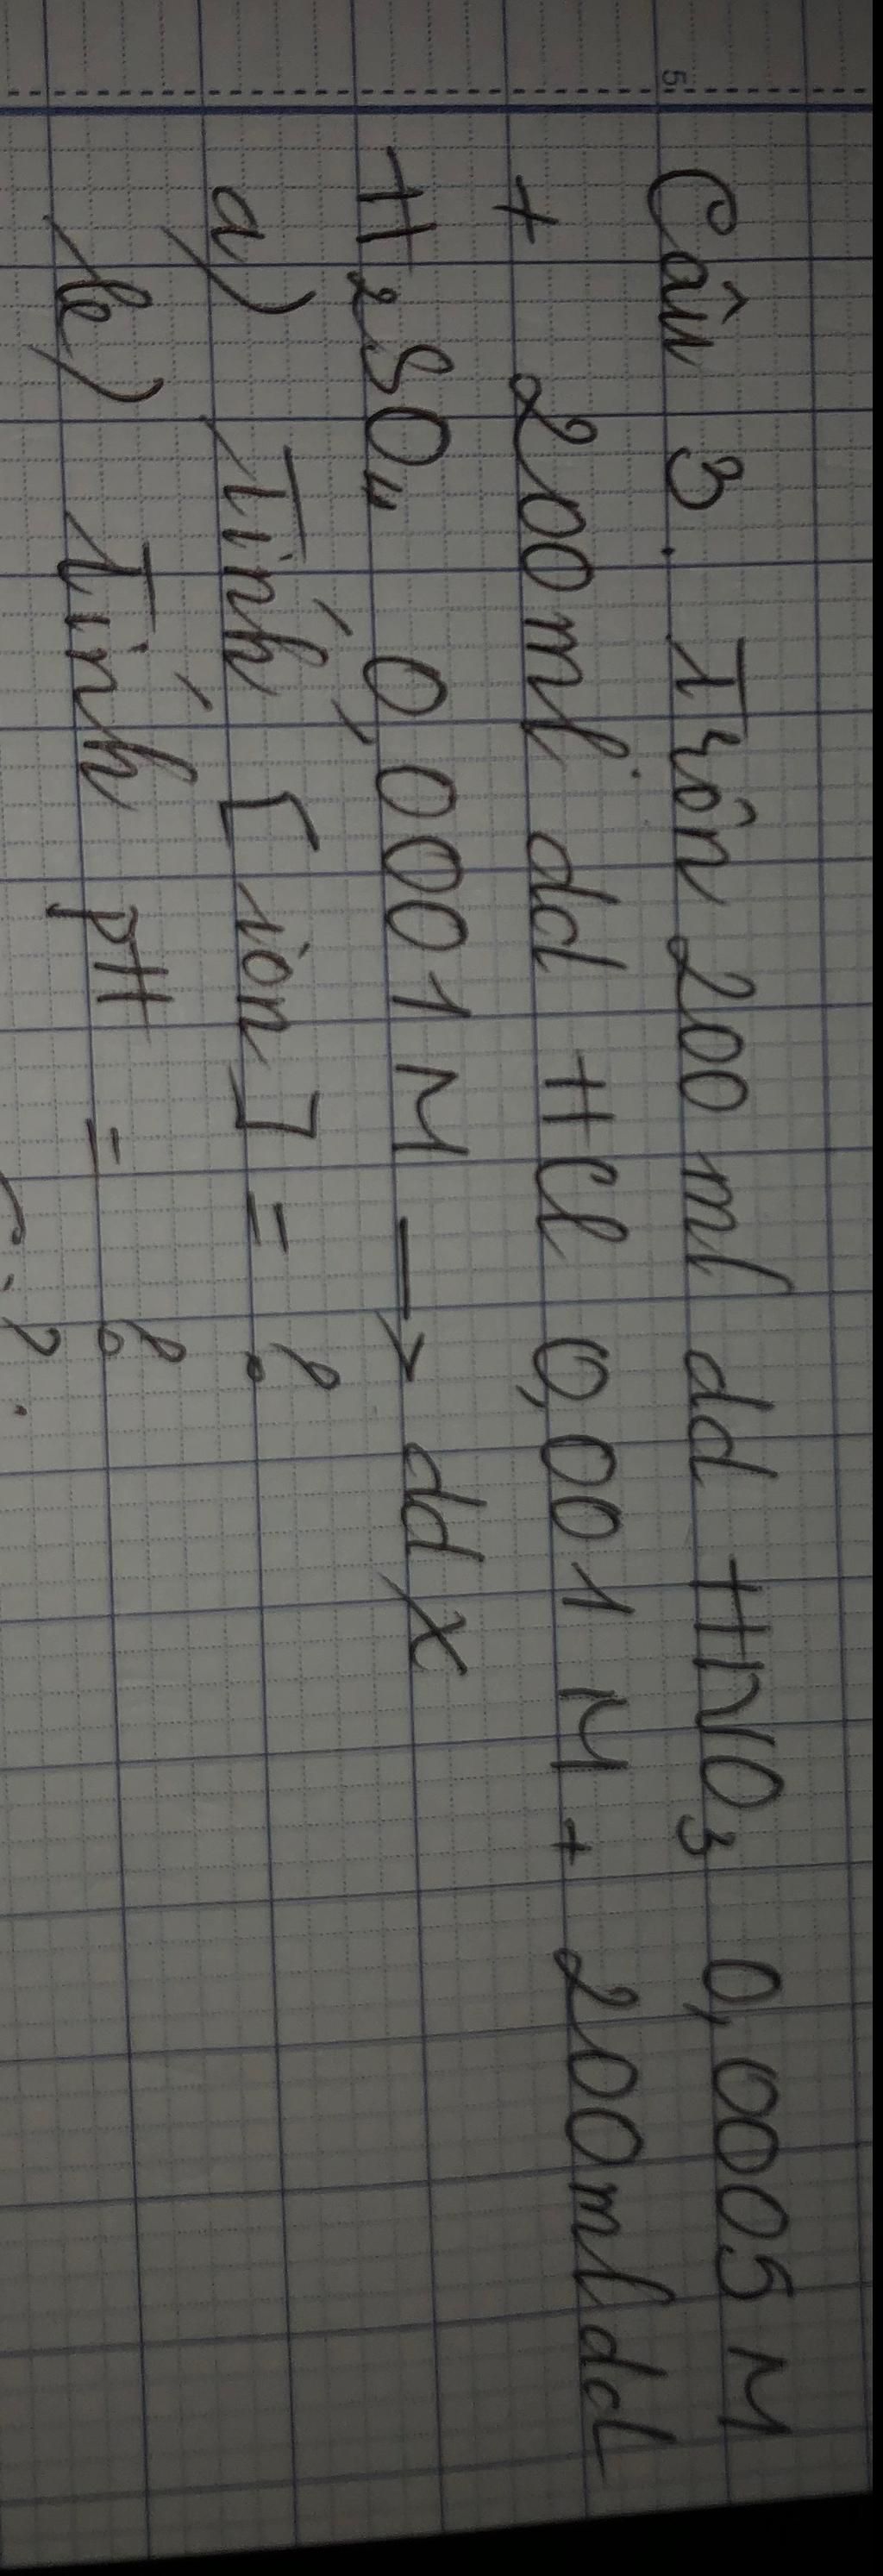 Câu 3. Trộn 200 ml dd HNO3 0,0005 M
+ 200ml dd HCl 0,001 M + 200ml dd
H2SO4 0,0001 M → dd X
a) Tính [ion] = ?
b) Tính pH = ?
5